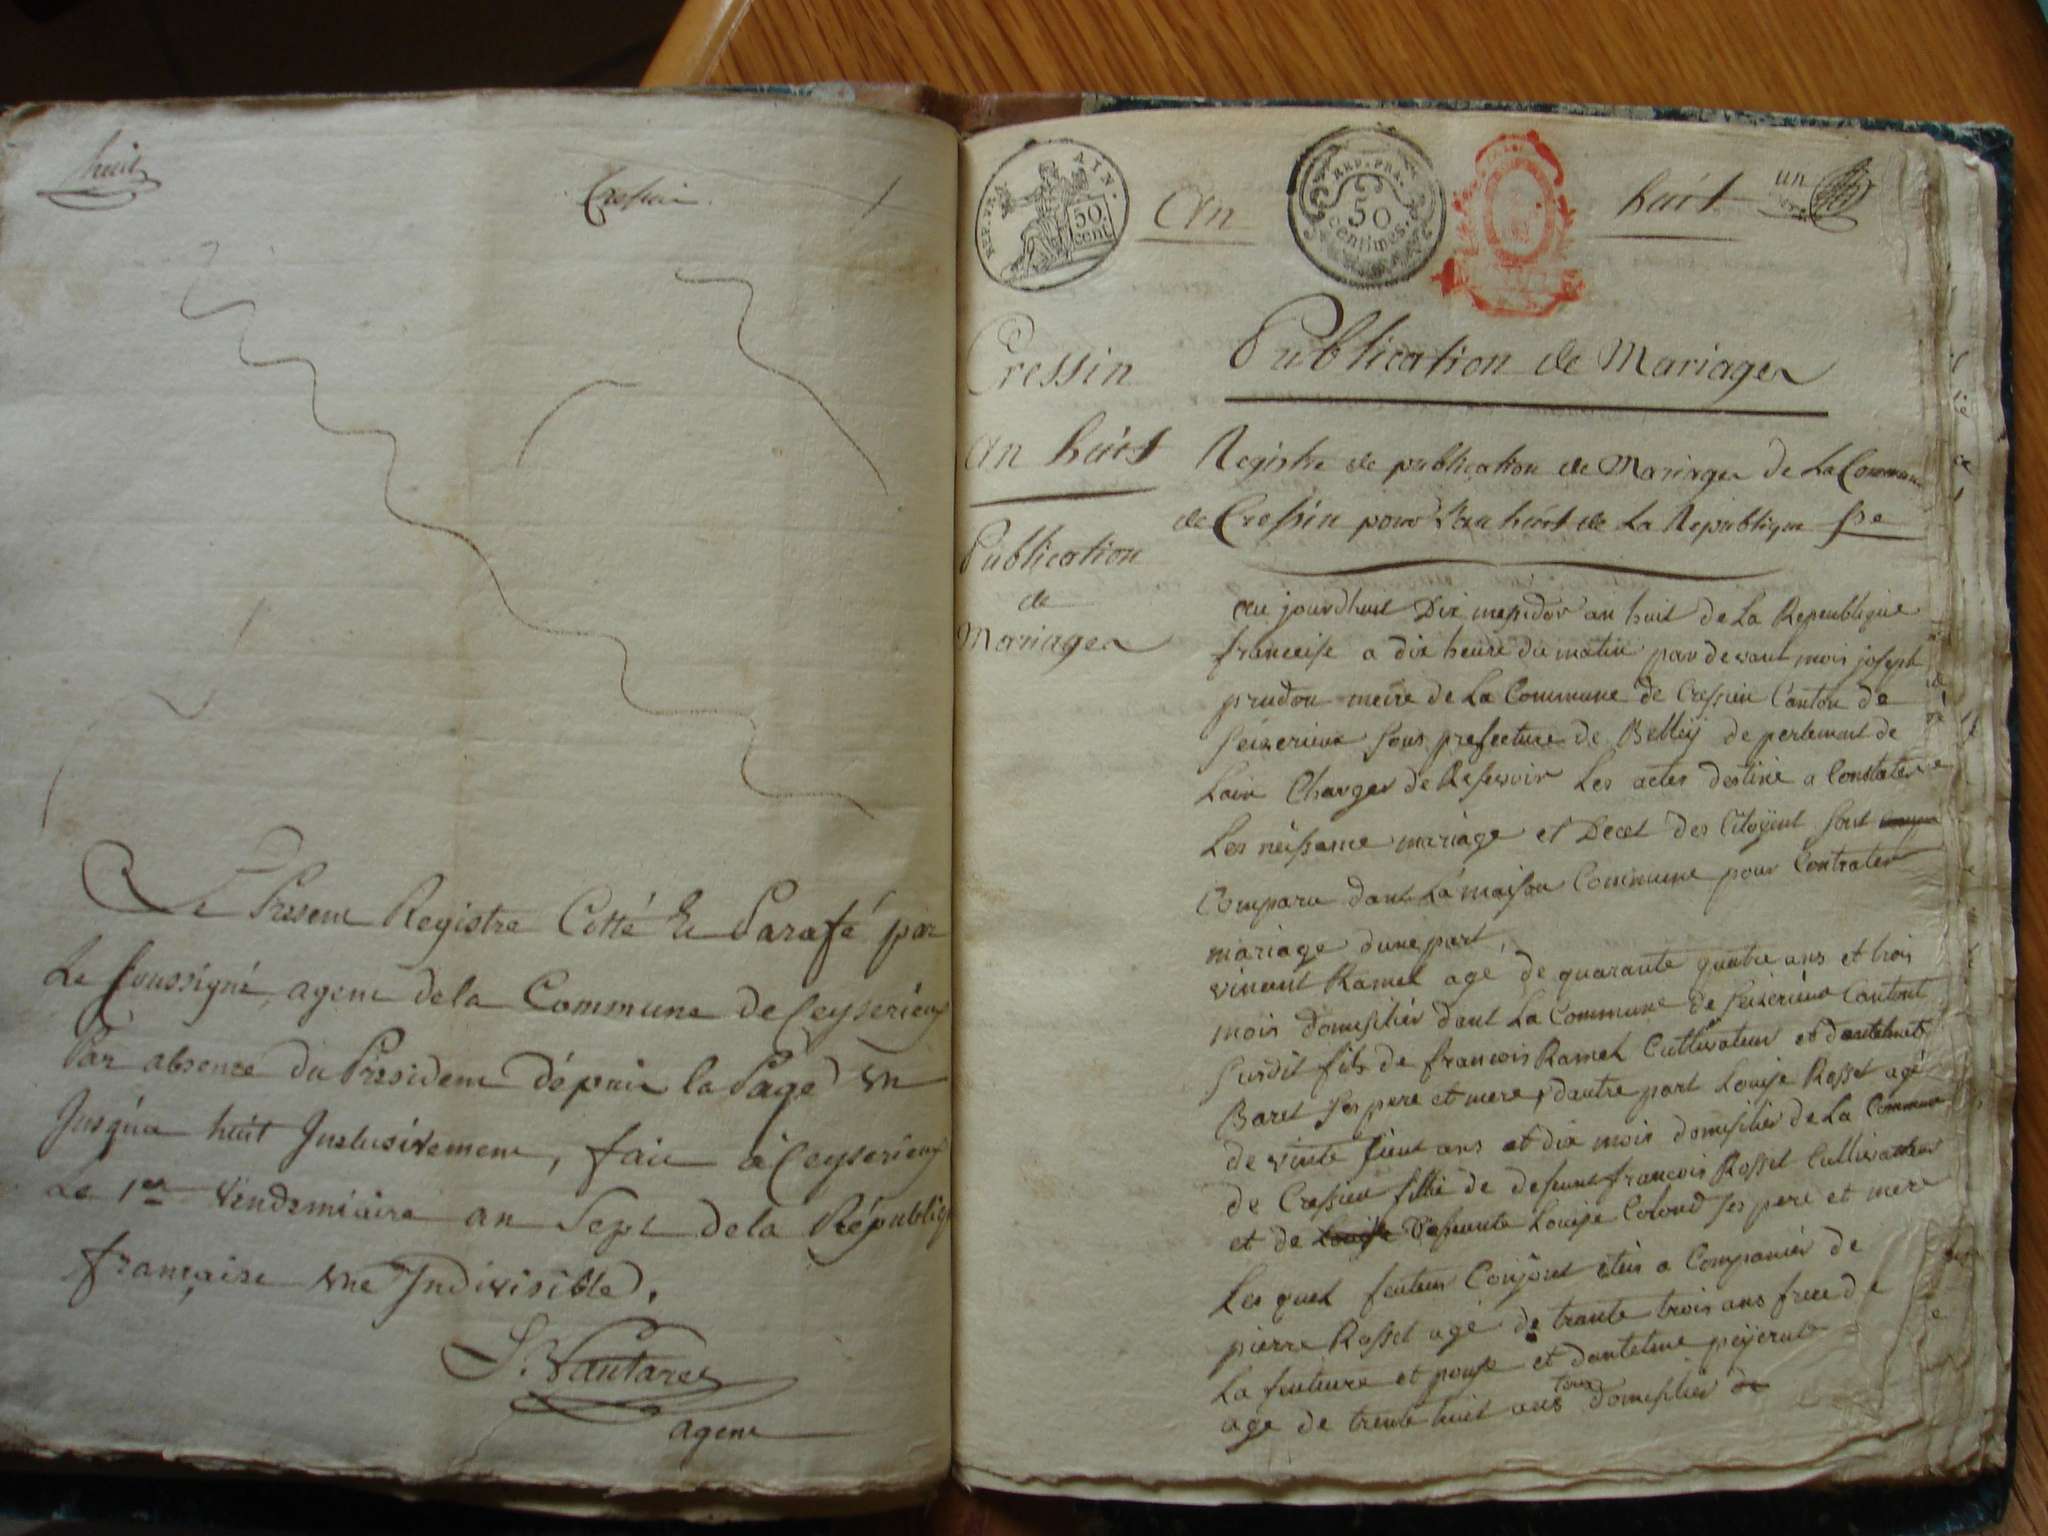 huit
Cressin
Le Present Registre Cotté Et Parafé par
Le soussigné agent de la Commune de Ceyserieux
Par absence du President dépuis la Page un
Jusqua huit Inclusivement, fait à Ceyserieux
Le 1er Vendemiaire an Sept de la Républiq
française une Indivisible.
S. Vautaret
agent
REP. FRA
AIN.
50
cent
An
REP. FRA.
50
Centimes.
huit
un
Cressin
an huit
Publication
de
Mariages
Publication de Mariages
Registre de publication de Mariages de La Commune
de Cressin pour L'an huit de La Republique fse
au jourdhuit Dix mesidor an huit de La Republique
franceise a dix heure du matin par devant mois joseph
prudon meire de La Commune de Cressieu Canton de
seizerieux sous prefecture de Belleÿ depertement de
Lain Charger de Ressevoir Les actes destiné a Constater
Les neissance mariage et Deces des Citoÿent sont
Comparu dant La maison Commune pour Contrater
mariage dune part,
vincent Ramel agé de quarante quatre ans et trois
mois domisilier dant La Commune de seizerieux Cantont
susdit fils de francois Ramel Cultivateur et dantelmet
Baret ses pere et mere, dautre part Louise Rosset agé
de vinte sient ans et dix mois domisilier de La Commune
de Cressieu fillie de defeunt francois Rosset Cultivateur
et de Louise defeunte Louise Colond ses pere et mere
Les quel feuteur Conjoint eteis a Companier de
pierre Rosset agé de trante trois ans frere de
La feuteure et pouse et dantelme peÿerut
age de trente huit ans tous domisilier de